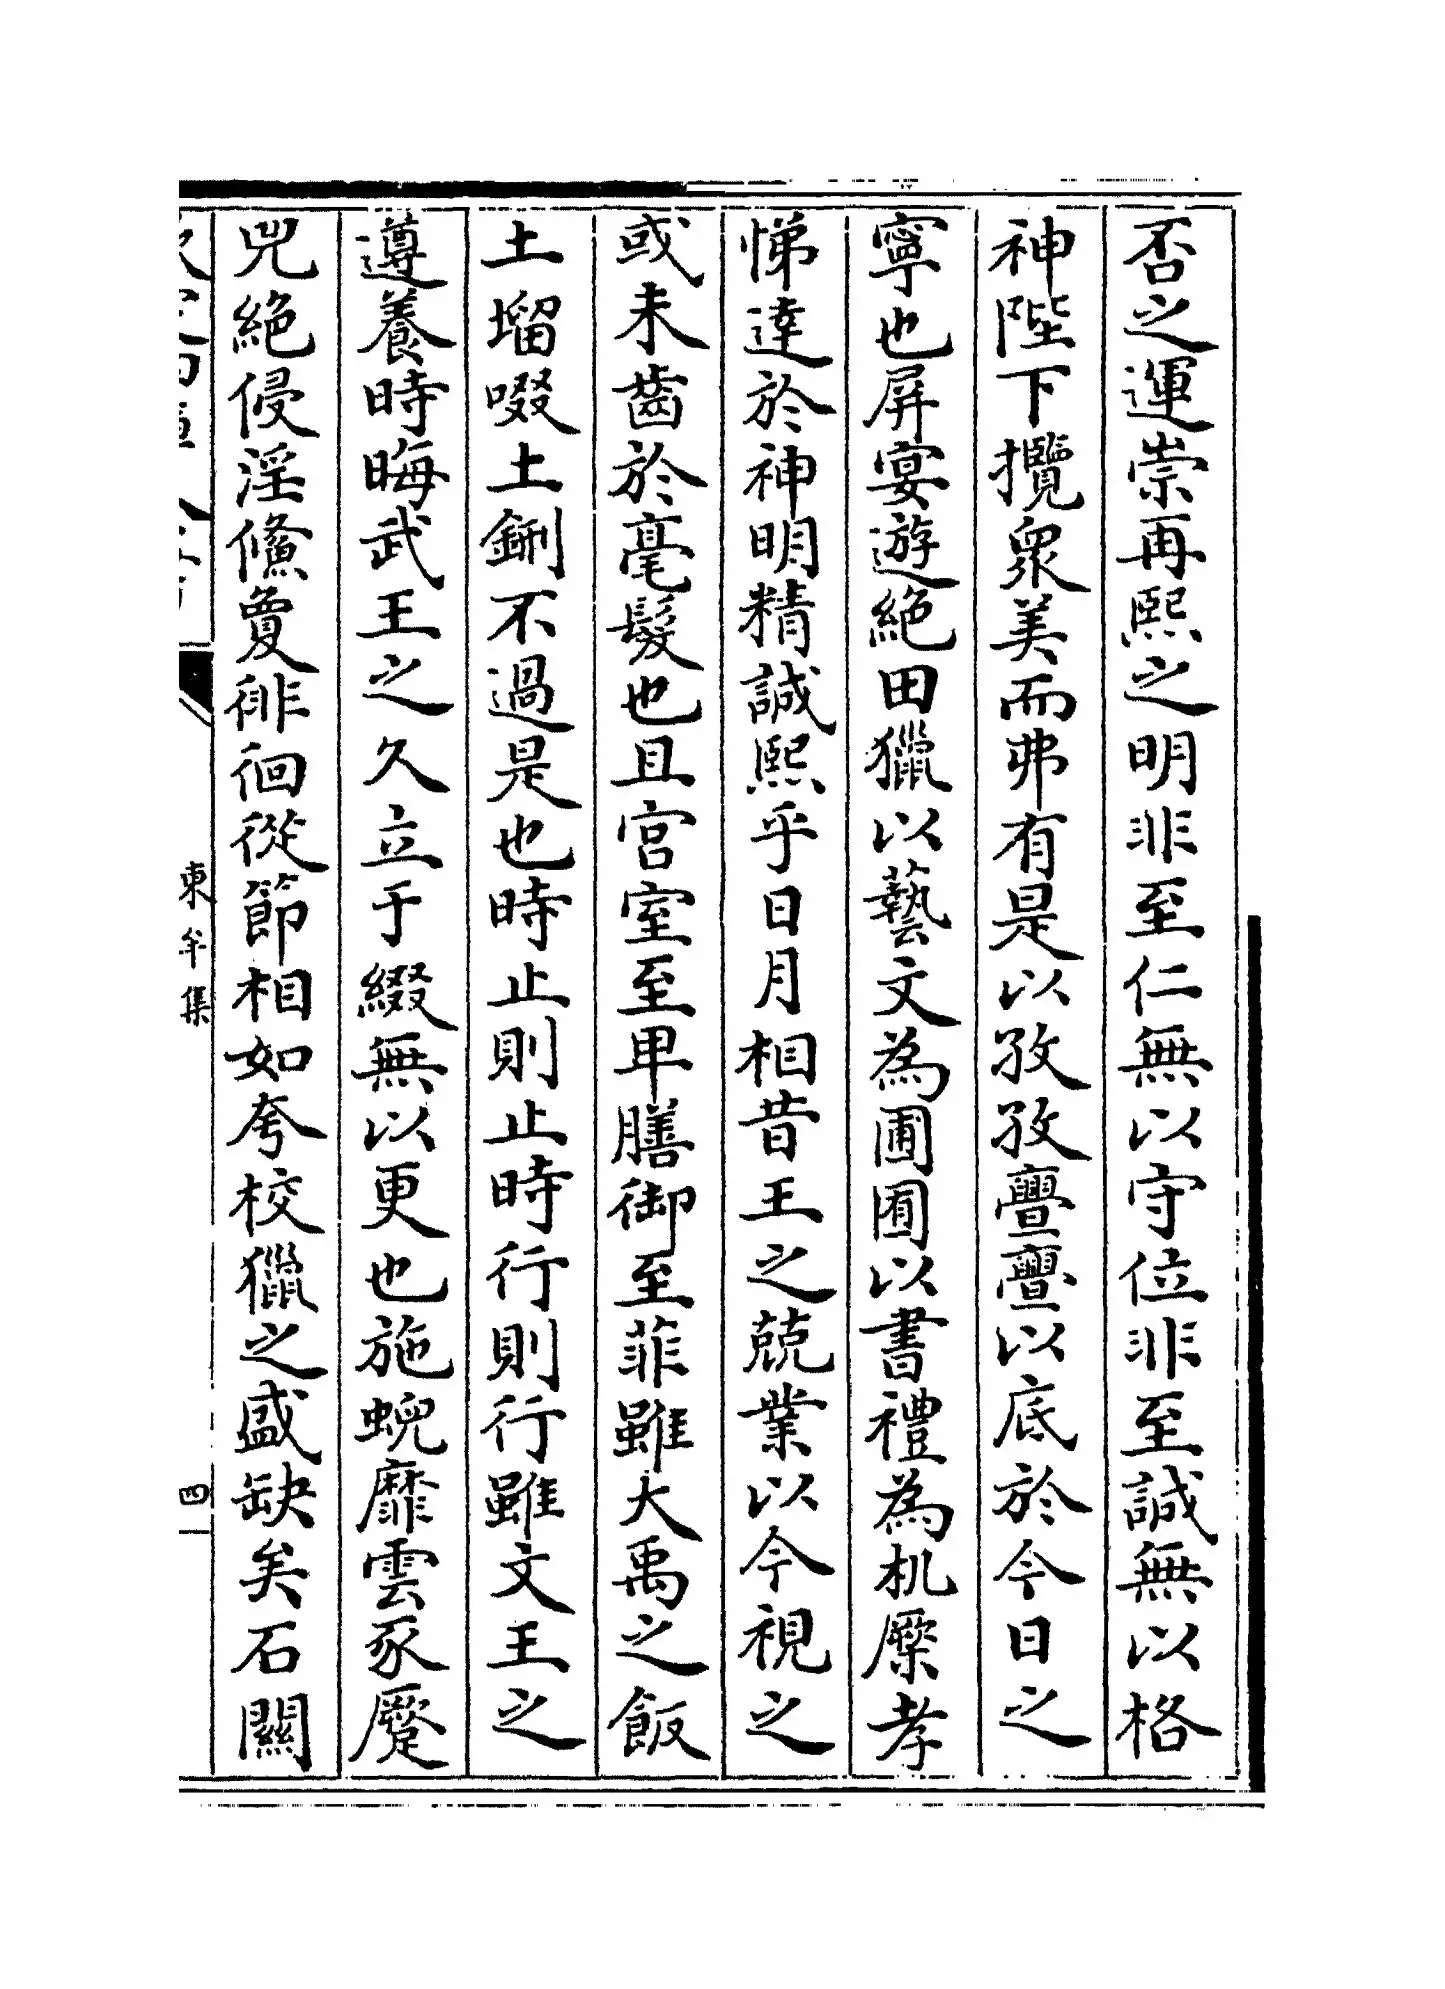 否之運崇再熙之明非至仁無以守位非至誠無以格
神陛下攬衆美而弗有是以孜孜亹亹以底於今日之
寧也屏宴遊絶田獵以藝文為圃囿以書禮為机橜孝
悌達於神明精誠熙乎日月相昔王之兢業以今視之
或未齒於毫髮也且宫室至卑膳御至菲雖大禹之飯
土塯啜土鉶不過是也時止則止時行則行雖文王之
遵養時晦武王之久立于綴無以更也施蜺靡雲豕蹷
兕絶侵淫儵敻徘徊從節相如夸校獵之盛缺矣石闗
東牟集
四